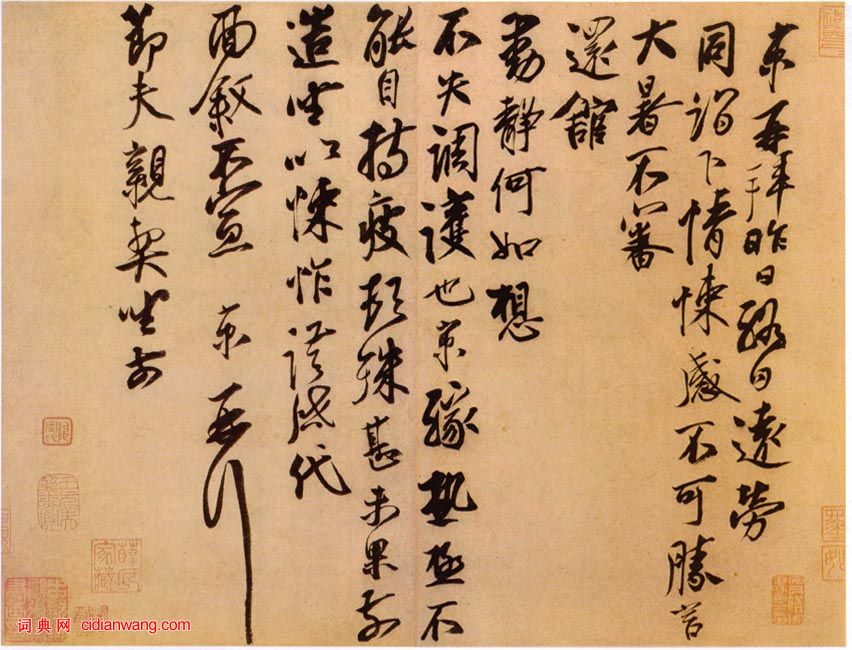 京再拜昨日終日遠勞
同詣下情悚感不可勝言
大暑不審
還舘
動靜何如想
不失調護也京緣熱極不
能自持疲頓殊甚未果前
造坐以悚怍謹啟代
面敘不宣 京再拜
節夫親契坐前
薛氏家藏
词典网 cidianwang.com